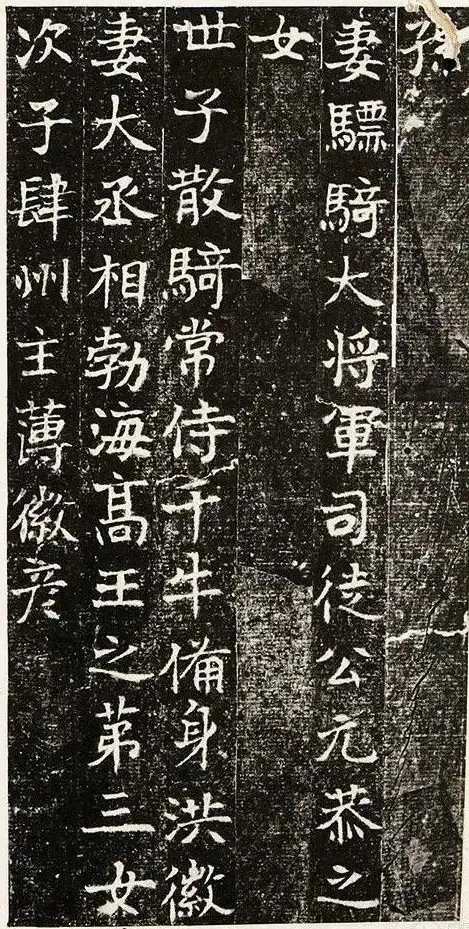 孫
妻驃騎大将軍司徒公元恭之
女
世子散騎常侍千牛俻身洪徽
妻大丞相勃海髙王之苐三女
次子肆州主薄徽彦